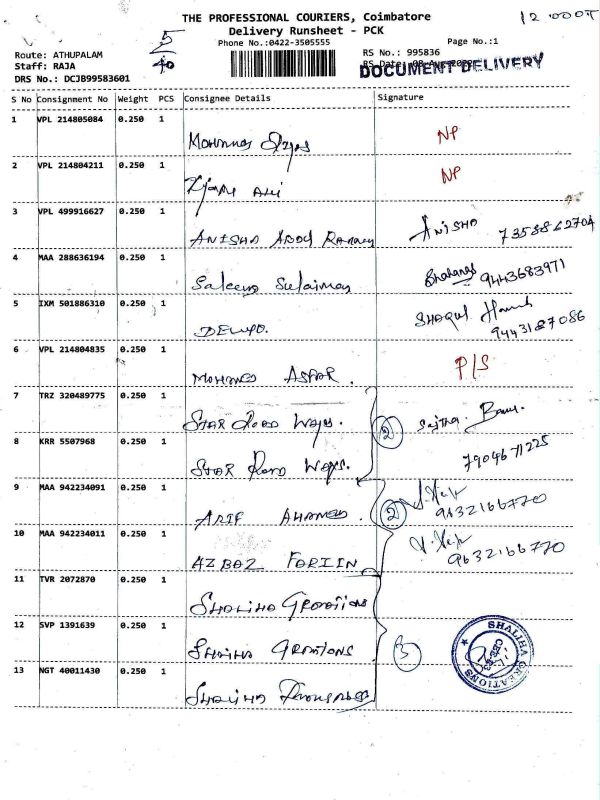 THE PROFESSIONAL COURIERS, Coimbatore
12
Delivery Runsheet - PCK
5
40
Phone No.:0422-3505555
Page No.:1
Route: ATHUPALAM
RS No.: 995836
Staff: RAJA
RS Date:
DOCUMENT DELIVERY
DRS No.: DCJB99583601
S No Consignment No Weight PCS Consignee Details Signature
1 VPL 214805084 0.250 1
NP
2 VPL 214804211 0.250 1 Ali NP
3 VPL 499916627 0.250 1 ANISHA Anisha
7358862704
4 MAA 288636194 0.250 1 Saleem Sulaiman
9443683971
5 IXM 501886310 0.250 1 Shaqul
9443187086
6 VPL 214804835 0.250 1 P/S
7 TRZ 320489775 0.250 1 Star Road Ways. 2 Sajitha. Banu.
8 KRR 5507968 0.250 1 Star Road Ways. 7904671225
9 MAA 942234091 0.250 1 ARIF AHAMED. 2
9632166770
10 MAA 942234011 0.250 1
9632166770
11 TVR 2072870 0.250 1 Shaliha Creations
12 SVP 1391639 0.250 1 Shaliha Creations 3
SHALIHA CREATIONS
13 NGT 40011430 0.250 1 Shaliha